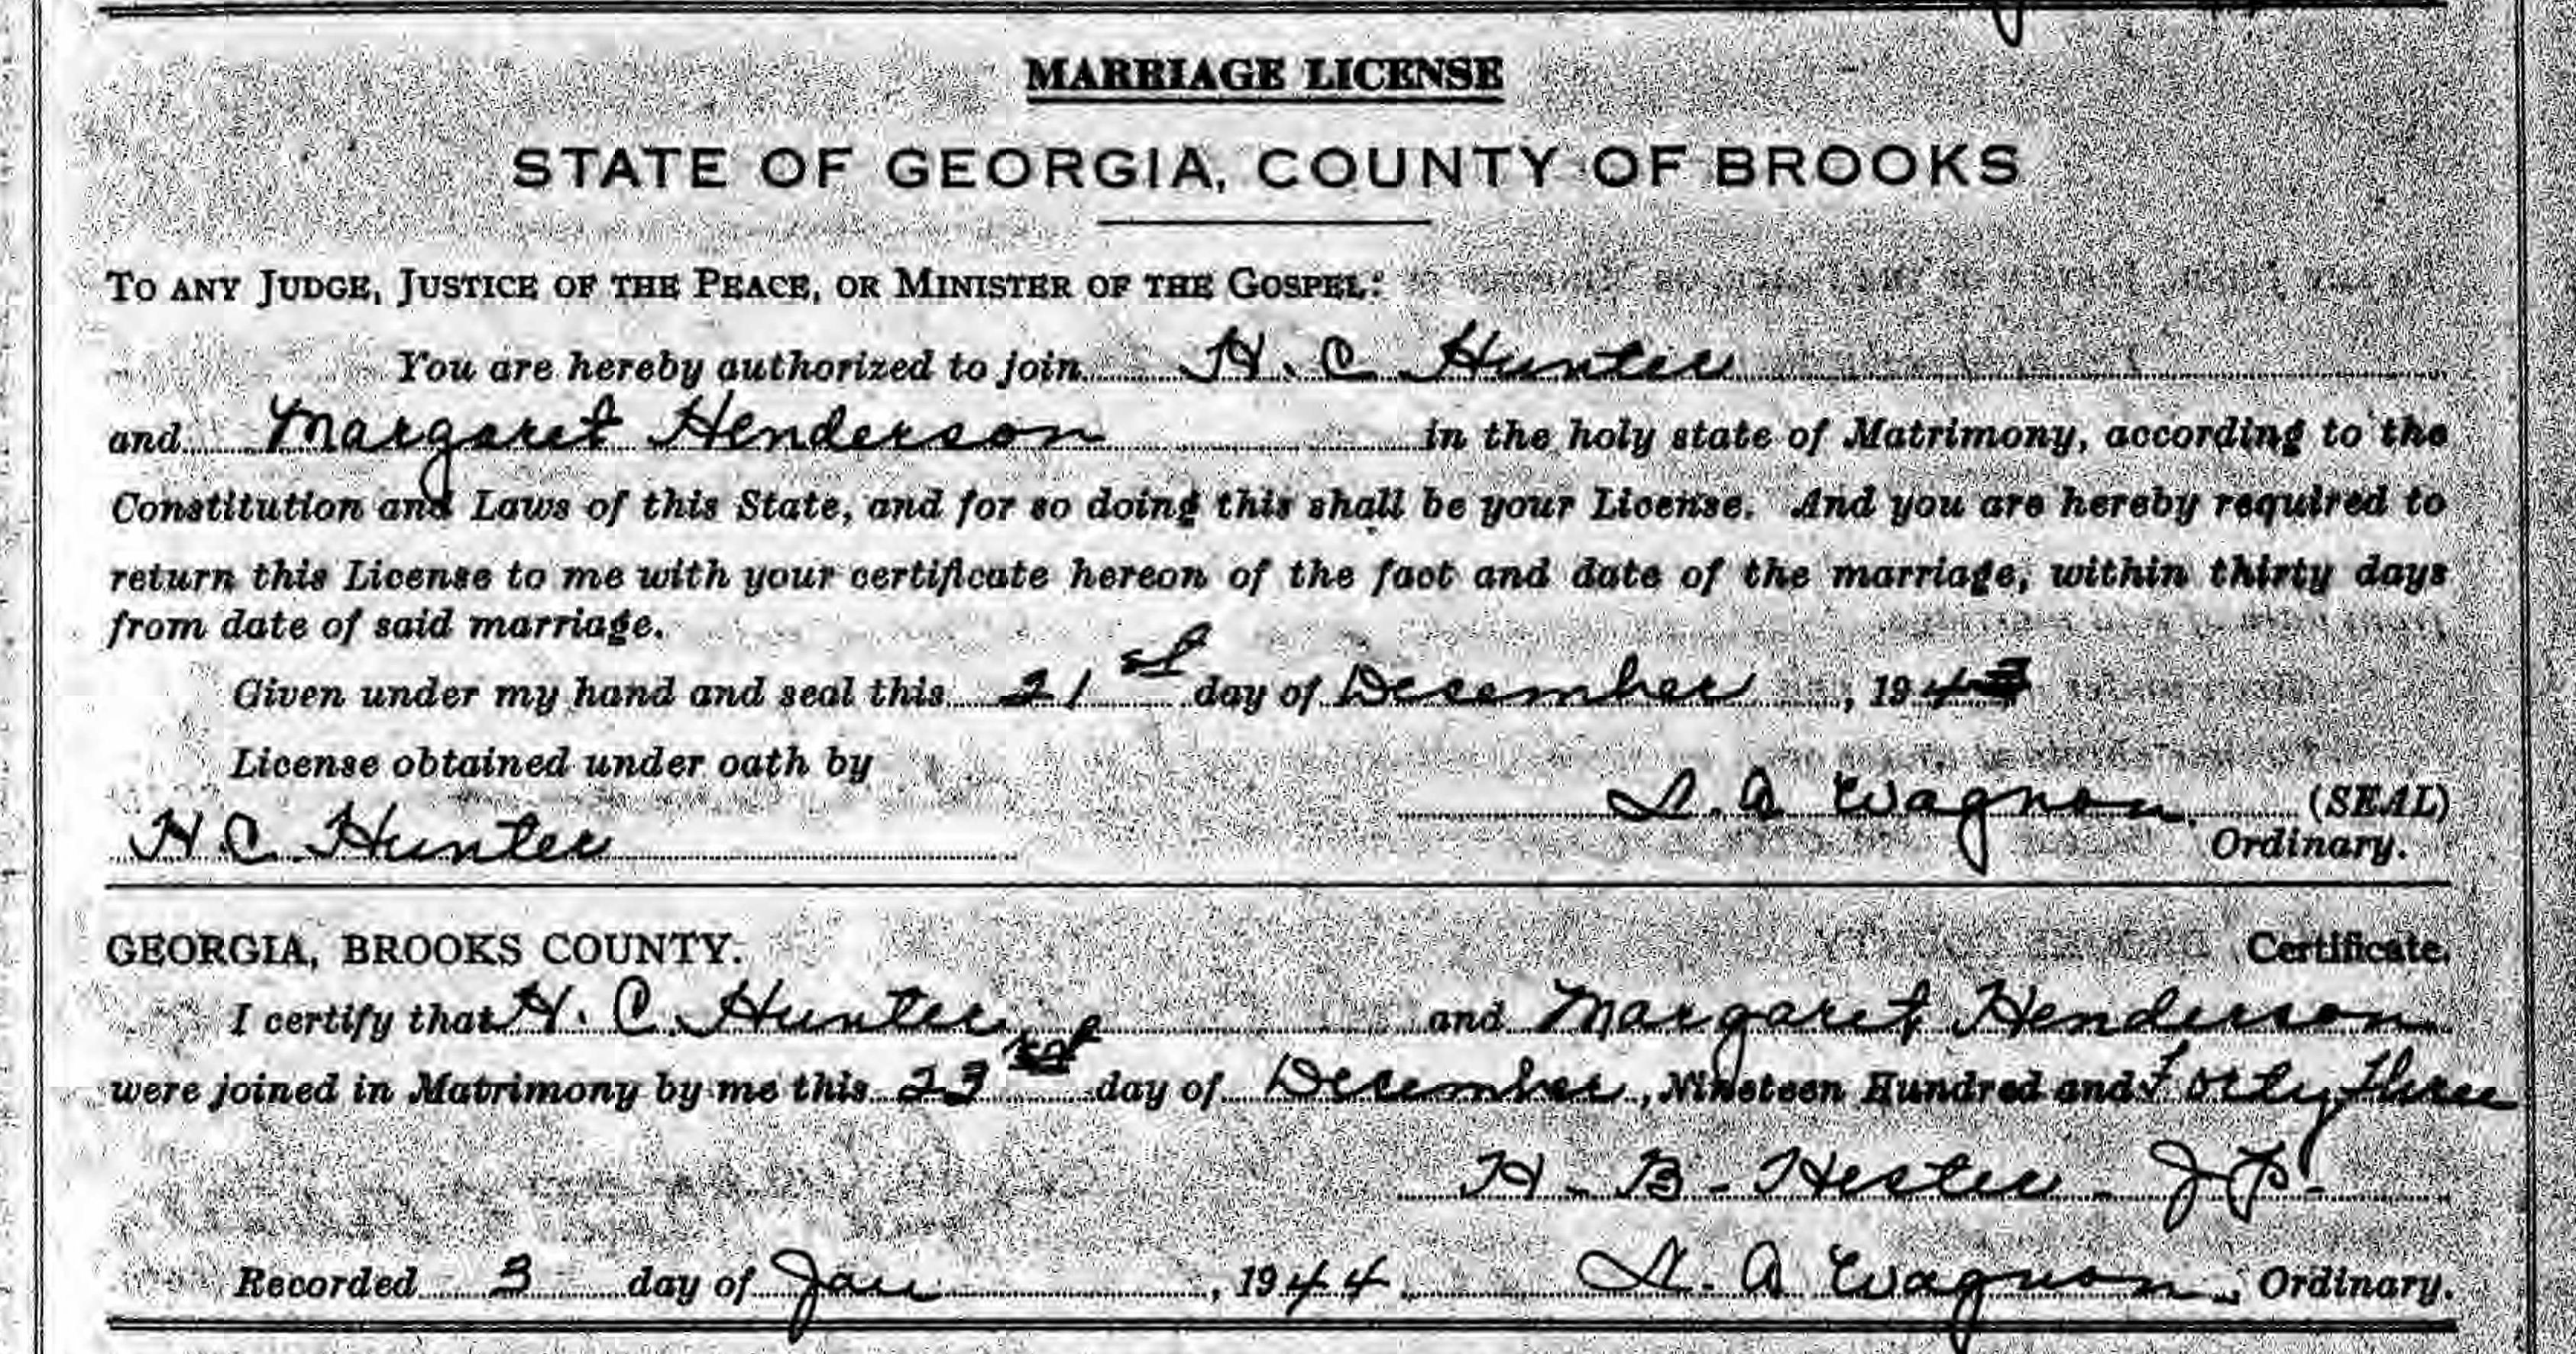 MARRIAGE LICENSE
STATE OF GEORGIA, COUNTY OF BROOKS
TO ANY JUDGE, JUSTICE OF THE PEACE, OR MINISTER OF THE GOSPEL:
You are hereby authorized to join H. C Hunter
and Margaret Henderson in the holy state of Matrimony, according to the
Constitution and Laws of this State, and for so doing this shall be your License. And you are hereby required to
return this License to me with your certificate hereon of the fact and date of the marriage, within thirty days
from date of said marriage.
Given under my hand and seal this 21st day of December, 1943
License obtained under oath by
A. Wagnon (SEAL)
H. C. Hunter Ordinary.
GEORGIA, BROOKS COUNTY. Certificate.
I certify that H. C. Hunter and Margaret Henderson
were joined in Matrimony by me this 23 day of December, Nineteen Hundred and Forty three
H - B - Hester - J P -
Recorded 3 day of Jan, 1944 A. Wagnon, Ordinary.